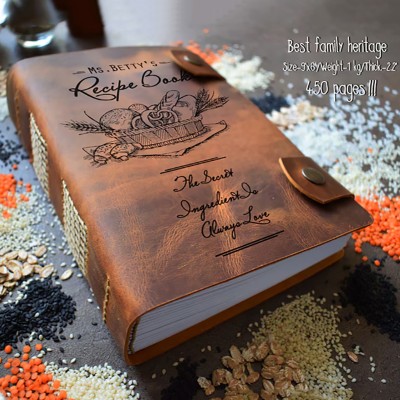 Best family heritage
Size=9x8/Weight=1 kg/Thick.=2.2"
450 pages!!!
Ms. Betty's
Recipe Book
The Secret
Ingredient Is
Always Love